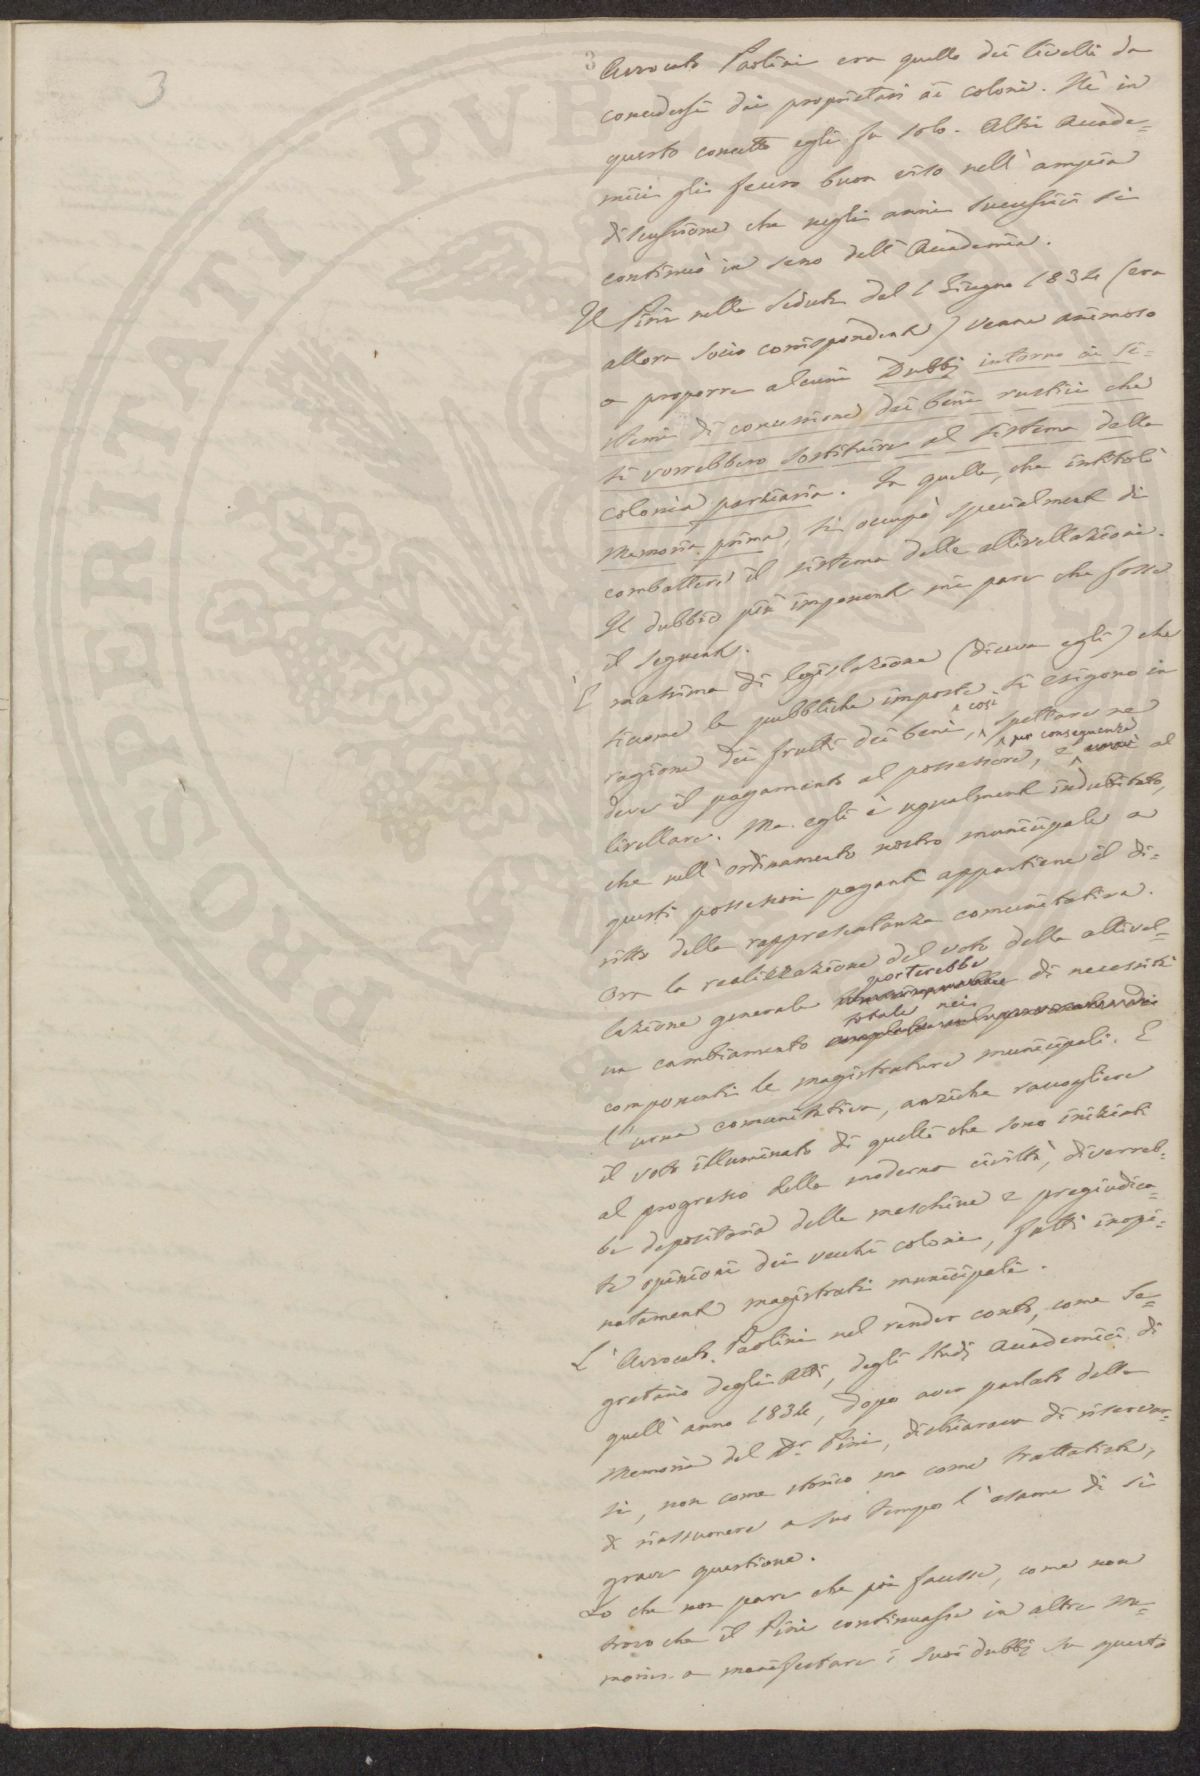 3
3
Avvocato Paolini era quello dei livelli da
concedersi dai proprietari ai coloni. Nè in
questo concetto egli fu solo. Altri Accade=
mici gli fecero buon viso nell'ampia
discussione che negli anni successivi si
continuò in seno dell'Accademia.
Il Pini nella seduta del 1 Giugno 1834 (era
allora socio corrispondente) venne animoso
a proporre alcuni Dubbj intorno ai si=
stemi di concessione dei beni rustici che
si vorrebbero sostituire al sistema della
colonia parziaria. In quella, che intitolò
Memoria prima, si occupò specialmente di
combattere il sistema delle allivellazioni.
Il dubbio più imponente mi pare che fosse
il seguente.
È massima di legislazione (diceva egli) che
siccome le pubbliche imposte si esigono in
ragione dei frutti dei beni, così spettare ne
deve il pagamento al possessore, e per conseguenza al
livellare. Ma egli è ugualmente indubitato,
che nell'ordinamento nostro municipale a
questi possessori paganti appartiene il di=
ritto della rappresentanza comunitativa.
Ora la realizzazione del voto della allivel=
lazione generale porterebbe di necessità
un cambiamento totale nei
componenti le magistrature municipali. E
l'urna comunitativa, anziche raccogliere
il voto illuminato di quelli che sono iniziati
al progresso della moderna civiltà, diverreb=
be depositaria delle meschine e pregiudica=
te opinioni dei vecchi coloni, fatti inopi=
natamente magistrati municipali.
L'Avvocato Paolini nel render conto, come Se=
gretario degli Atti, degli Studj Accademici di
quell'anno 1834, dopo aver parlato della
Memoria del Dr. Pini, dichiarava di riservar=
si, non come storico ma come trattatista,
di riassumere a suo tempo l'esame di sì
grave questione.
Lo che non pare che poi facesse, come non
trovo che il Pini continuasse in altre me=
morie a manifestare i suoi dubbj su questo
PROSPERITATI PVBL